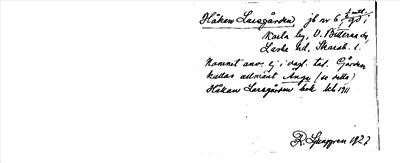 Håkan Larsgården jb nr 6,
Karla by, V. Bitterna sn,
Laske hd. Skarab. l.
Namnet anv. ej i dagl. tal. Gården
kallas allmänt Änga (se detta)
Håkan Larsgården bok.
R. Ljunggren 1927